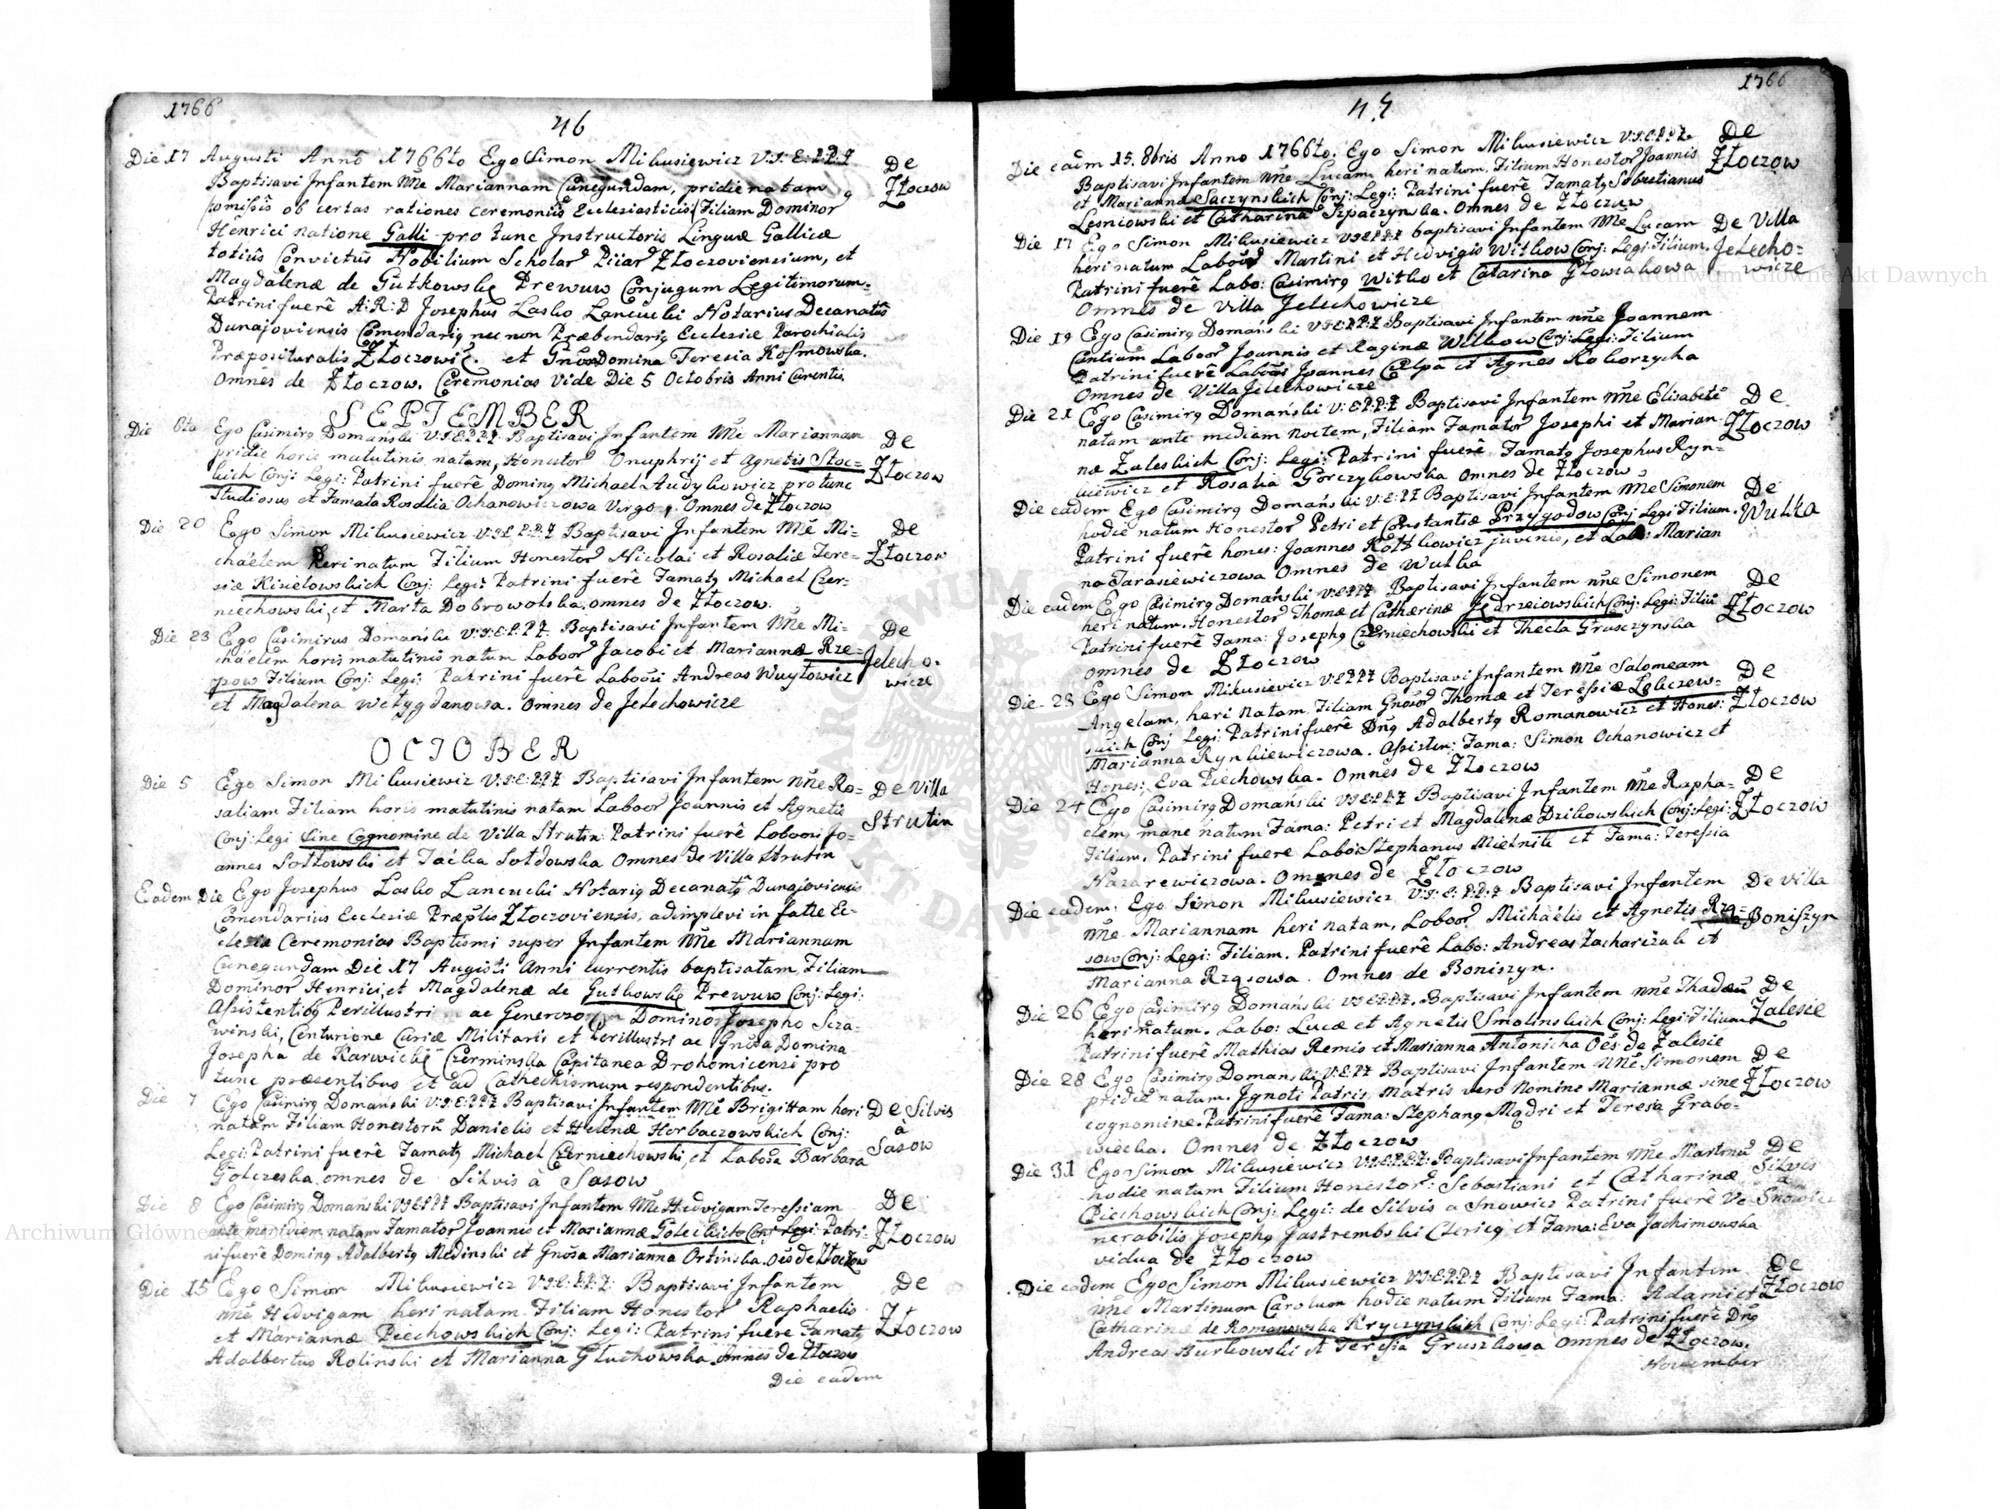 1766
46
Die 17 Augusti Anno 1766to Ego Simon Mikusiewicz V:S:E:P:P:Z De
Baptisavi Infantem Nne Mariannam Cunegundam, pridie natam Złoczow
omissis ob certas rationes ceremoniis Ecclesiasticis Filiam Dominor
Henrici natione Galli pro tunc Instructoris Linguæ Gallicæ
totius Convictus Nobilium Scholar Piiar Złoczoviensium, et
Magdalenæ de Gutkowskie Prewuw Conjugum Legitimorum.
Patrini fuerê A:R:D Josephus Lasko Lancucki Notarius Decanatûs
Dunajoviensis Comendariq nec non Præbendariq Ecclesiæ Parochialis
Præposituralis Złoczowic. et Gnosa Domina Teresia Kosmowska.
Omnes de Złoczow. Ceremonias Vide Die 5 Octobris Anni Curentis
SEPTEMBER
Die 6ta Ego Casimirq Domański V:S:E:P:P:Z Baptisavi Infantem Nne Mariannam De
pridie horis matutinis natam, Honestor Onuphrij et Agnetis Stoc= Złoczow
kich Conj: Legi: Patrini fuerê Dominq Michael Audykowicz pro tunc
Studiosus et Famata Rosalia Ochanowiczowa Virgo. Omnes de Złoczow
Die 20 Ego Simon Mikusiewicz V:S:E:P:P:Z Baptisavi Infantem Nne Mi- De
chaelem heri natum Filium Honestor Nicolai et Rosaliæ Tere= Złoczow
siæ Kisielowskich Conj: Legi: Patrini fuerê Famatq Michael Czer-
niechowski, et Marta Dobrowolska. omnes de Złoczow.
Die 23 Ego Casimirus Domański V:S:E:P:P:Z Baptisavi Infantem Nne Mi- De
chaelem horis matutinis natum Laboor Jacobi et Mariannæ Rze= Jelecho-
pow Filium Conj: Legi: Patrini fuerê Labocu Andreas Wuytowicz wicze
et Magdalena Wetygdanowa. Omnes de Jelechowicze
OCTOBER
Die 5 Ego Simon Mikusiewicz V:S:E:P:P:Z Baptisavi Infantem Nne Ro= De Villa
saliam Filiam horis matutinis natam Laboor Joannis et Agnetis Strutin
Conj: Legi Sine Cognomine de Villa Strutin Patrini fuerê Laboosi Jo=
annes Sołtowski et Taćka Sołdowska Omnes de Villa Strutin
Eadem Die Ego Josephus Lasko Lancucki Notariq Decanatq Dunajoviensis
Comendarius Ecclesiæ Præptis Złoczoviensis, adimplevi in facie Ec-
clesiæ Ceremonias Baptismi super Infantem Nne Mariannam
Cunegundam Die 17 Augusti Anni currentis baptisatam, Filiam
Dominor Henrici, et Magdalenæ de Gutkowskie Prewuw Conj: Legi:
Assistentibq Perillustri ac Generoso Domino Josepho Scza-
winski, Centurione Curiæ Militaris et Perillustri ac Gnosa Domina
Josepha de Karwickie Czerminska Capitanea Drohomicensi pro
tunc præsentibus et ad Cathechismum respondentibus.
Die 7 Ego Casimirq Domański V:S:E:P:P:Z Baptisavi Infantem Nne Brigittam heri De Silvis
natam Filiam Honestorû Danielis et Helenæ Horbaczowskich Conj: à
Legi: Patrini fuerê Famatq Michael Czerniechowski, et Labosa Barbara Sasow
Golczeska omnes de Silvis à Sasow
Die 8 Ego Casimirq Domański V:S:E:P:P:Z Baptisavi Infantem Nne Hedvigam Teressiam De
ante meridiem natam Famator Joannis et Mariannæ Goleckich Conj: Legi: Patri- Złoczow
ni fuerê Dominq Adalbertq Medinski et Gnosa Marianna Ortinska. Oes de Złoczow
Die 15 Ego Simon Mikusiewicz V:S:E:P:P:Z Baptisavi Infantem De
Nne Hedvigam heri natam Filiam Honestor Raphaelis Złoczow
et Mariannæ Piechowskich Conj: Legi: Patrini fuere Famatq
Adalbertus Rolinski et Marianna Głuchowska Omnes de Złoczow
Die eadem
1766
47
Die eadm 15. 8bris Anno 1766to. Ego Simon Mikusiewicz V:S:E:P:P:Z. De
Baptisavi Infantem Nne Lucam heri natum, Filium Honestor Joannis Złoczow
et Mariannæ Saczynskich Conj: Legi: Patrini fuerê Famatq Sebastianus
Lesniowski et Catharina Szpaczynska. Omnes de Złoczow
Die 17 Ego Simon Mikusiewicz V:S:E:P:P:Z baptisavi Infantem Nne Lucam De Villa
heri natum Laboor Martini et Hedvigis Witkow Conj: Legi: Filium, Jelecho=
Patrini fuerê Labo: Casimirq Witko et Catarina Głowiakowa wicze
Omnes de Villa Jelechowicze
Die 19 Ego Casimirq Domański V:S:E:P:P:Z Baptisavi Infantem Nne Joannem
Cantium Laboor Joannis et Raginæ Witkow Conj: Legi: Filium
Patrini fuerê Labosi Joannes Czelpa et Agnes Koborzycha
Omnes de Villa Jelechowicze
Die 21 Ego Casimirq Domański V:E:P:P:Z Baptisavi Infantem Nne Elisabetê De
natam ante mediam noctem, Filiam Famator Josephi et Marian Złoczow
næ Zaleskich Conj: Legi: Patrini fuerê Famatq Josephus Ryn=
kiewicz et Rosalia Gorczykowska Omnes de Złoczow
Die eadem Ego Casimirq Domański V:S:E:P:Z Baptisavi Infantem Nne Simonem De
hodie natum Honestor Petri et Constantiæ Przygodow Conj: Legi Filium. Wulka
Patrini fuerê hones: Joannes Kotzkowicz juvenis, et Labo: Marian
na Tarasiewiczowa Omnes de Wulka
Die eadem Ego Casimirq Domański V:S:E:P:P:Z Baptisavi Infantem Nne Simonem De
heri natum. Honestor Thomæ et Catherinæ Jędrzeiowskich Conj: Legi: Filiû Złoczow
Patrini fuerê Fama: Josephq Czerniechowski et Thecla Gruszczynska
omnes de Złoczow
Die 23 Ego Simon Mikusiewicz V:S:E:P:P:Z Baptisavi Infantem Nne Salomeam De
Angelam, heri natam Filiam Gnosor Thomæ et Teressiæ Lekczew= Złoczow
skich Conj Legi: Patrini fuerê Dnq Adalbertq Romanowicz et Hones:
Marianna Rynkiewiczowa. Assisten: Fama: Simon Ochanowicz et
Hones: Eva Piechowska. Omnes de Złoczow
Die 24 Ego Casimirq Domański V:S:E:P:P:Z Baptisavi Infantem Nne Rapha- De
elem, mane natum Fama: Petri et Magdalenæ Dzikowskich Conj: Legi: Złoczow
Filium. Patrini fuere Labo: Stephanus Mielnik et Fama: Teressia
Nazarewiczowa. Omnes de Złoczow
Die eadem: Ego Simon Mikusiewicz V:S:E:P:P:Z Baptisavi Infantem De Villa
Nne Mariannam heri natam, Laboor Michaelis et Agnetis Rzą= Boniszyn
sow Conj: Legi: Filiam. Patrini fuerê Labo: Andreas Zacharizak et
Marianna Rząsowa. Omnes de Boniszyn.
Die 26 Ego Casimirq Domański V:S:E:P:P:Z. Baptisavi Infantem Nne Thadeû De
heri natum. Labo: Lucæ et Agnetis Smolinskich Conj: Legi: Filium Zalesie
Patrini fuerê Mathias Remis et Marianna Antonicha Oes de Zalesie
Die 28 Ego Casimirq Domański V:S:E:P:P:Z Baptisavi Infantem Nne Simonem De
pridiê natum. Ignoti Patris, Matris vero Nomine Mariannæ sine Złoczow
cognomine. Patrini fuerê Fama: Stephanq Mądri et Teresa Grabo-
wiecka. Omnes de Złoczow
Die 31 Ego Simon Mikusiewicz V:S:E:P:P:Z. Baptisavi Infantem Nne Martinû De
hodie natum Filium Honestor: Sebastiani et Catharinæ Silvis
Piechowskich Conj: Legi: de Silvis a Snowicz Patrini fuerê Ve- a Snowicz
nerabilis Josephq Jastrembski Clericq et Fama: Eva Jachimowska
vidua de Złoczow
Die eadem Ego Simon Mikusiewicz V:S:E:P:P:Z Baptisavi Infantem De
Nne Martinum Carolum hodie natum Filium Fama: Adami et Złoczow
Catharinæ de Romanowska Kryczynskich Conj: Legi: Patrini fuerê Dnq
Andreas Hurkowski et Teresia Gruszkowa Omnes de Złoczow.
November